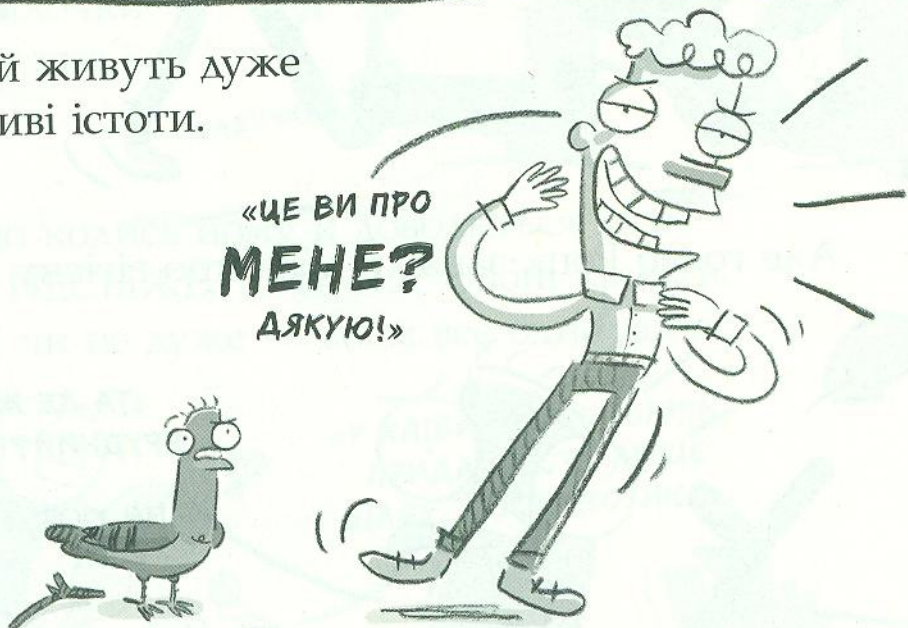 й живуть дуже
иві істоти.
«ЦЕ ВИ ПРО
МЕНЕ?
ДЯКУЮ!»